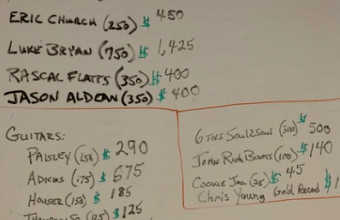 ERIC CHURCH (250) $ 450
LUKE BRYAN (750) $ 1,425
RASCAL FLATTS (350) $ 400
JASON ALDEAN (350) $ 400
GUITARS:
PAISLEY (150) $ 290
ADKINS (175) $ 675
HOUSER (150) $ 185
(125) $ 125
6THS Soul2Soul (300) $ 500
JOHN RICH BOOTS (100) $ 140
COOKIE JAR (25) $ 45
Chris Young Gold Record $